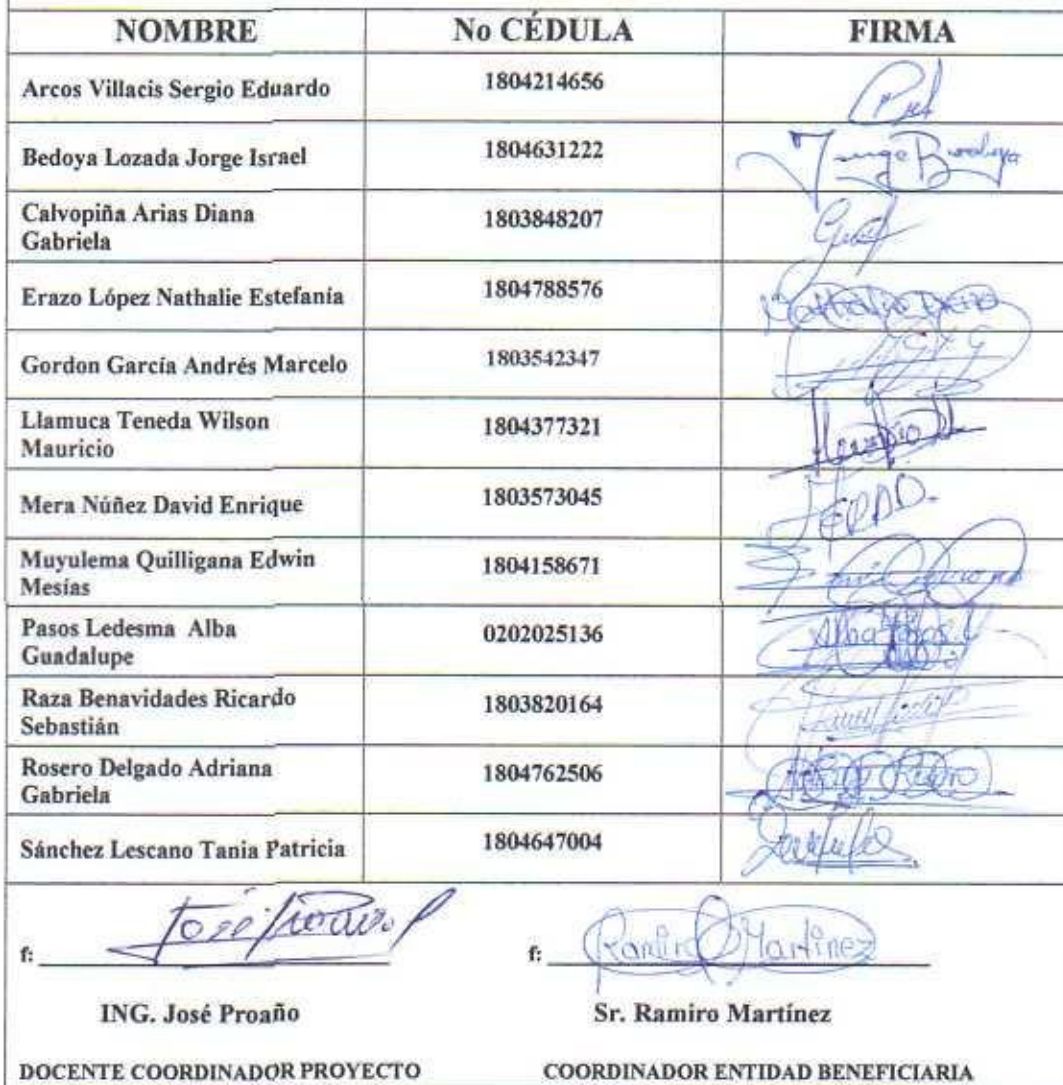 NOMBRE No CÉDULA FIRMA
Arcos Villacis Sergio Eduardo 1804214656
Bedoya Lozada Jorge Israel 1804631222 Jorge Bedoya
Calvopiña Arias Diana
Gabriela 1803848207
Erazo López Nathalie Estefanía 1804788576 Nathalie Erazo
Gordon García Andrés Marcelo 1803542347
Llamuca Teneda Wilson
Mauricio 1804377321
Mera Núñez David Enrique 1803573045
Muyulema Quilligana Edwin
Mesías 1804158671
Pasos Ledesma Alba
Guadalupe 0202025136 Alba Pasos L
Raza Benavidades Ricardo
Sebastián 1803820164
Rosero Delgado Adriana
Gabriela 1804762506 Adriana Rosero
Sánchez Lescano Tania Patricia 1804647004
f: José Proaño f: Ramiro Martínez
ING. José Proaño Sr. Ramiro Martínez
DOCENTE COORDINADOR PROYECTO COORDINADOR ENTIDAD BENEFICIARIA